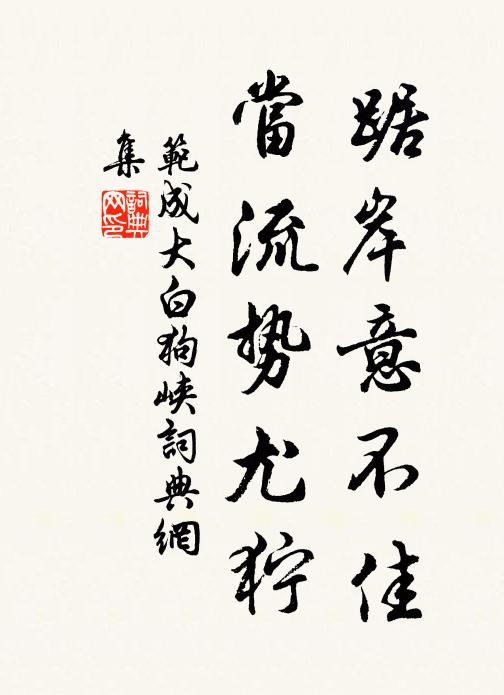 踞岸意不佳
當流势尤狞
範成大白狗峽詞典網
集
詞典
网印